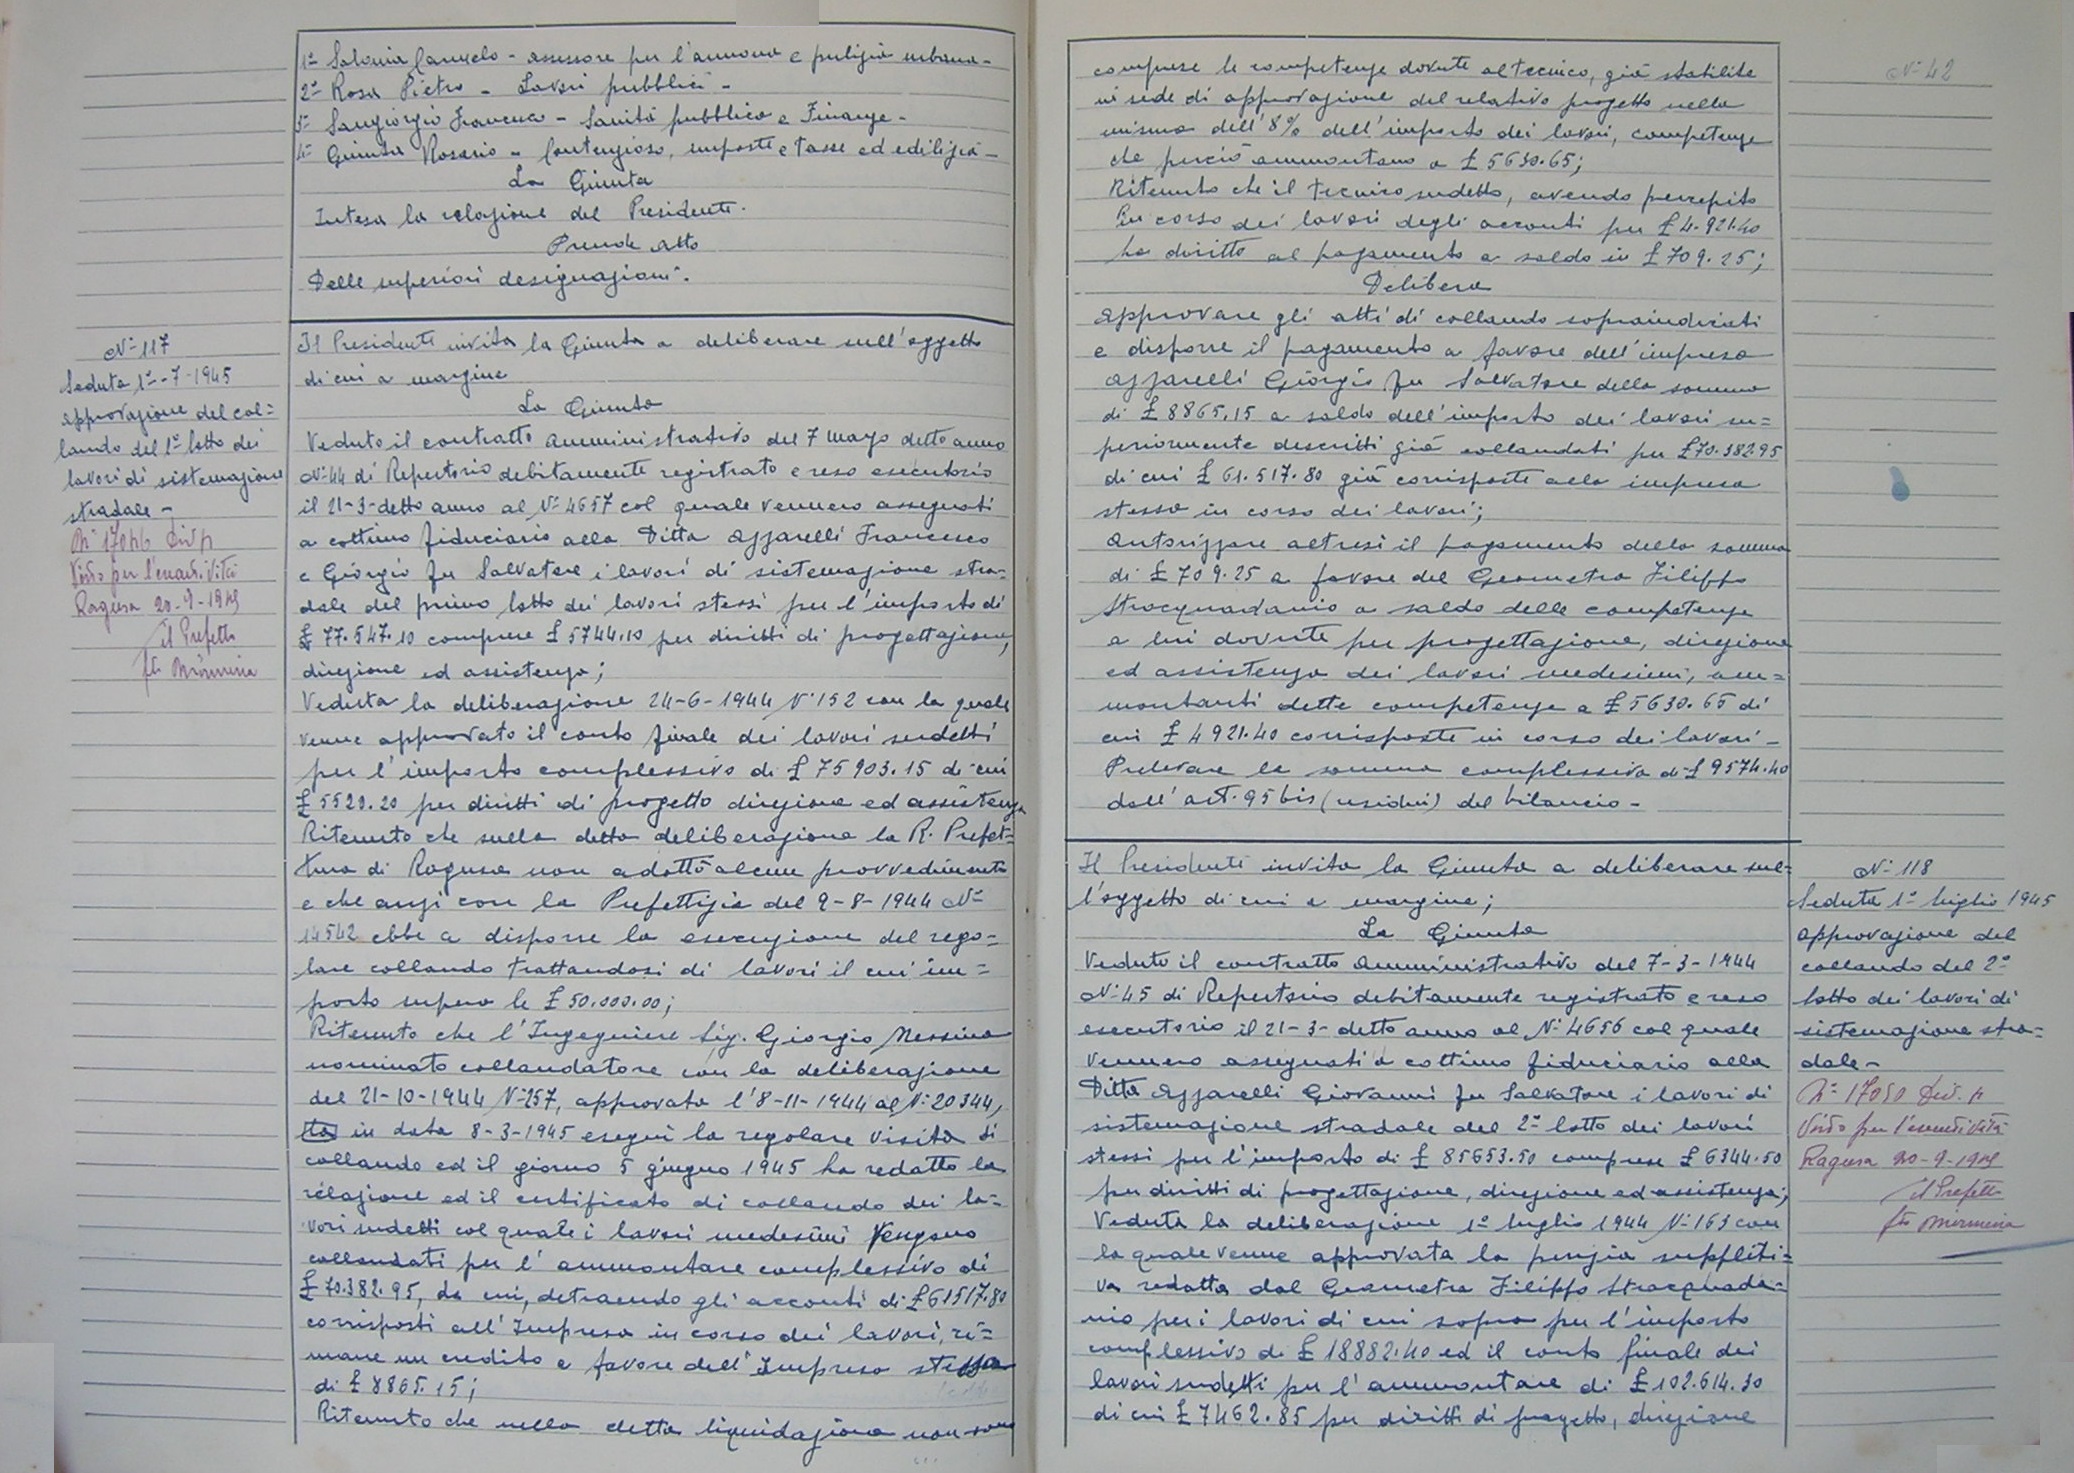 1º Salonia Carmelo - assessore per l'annona e pulizia urbana -
2º Rosa Pietro - Lavori pubblici -
3º Sangiorgio Francesco - Sanità pubblica e Finanze -
4º Giunta Rosario - Contenzioso, imposte e tasse ed edilizia -
La Giunta
Intesa la relazione del Presidente.
Prende atto
Delle superiori designazioni.
Nº 117
Seduta 1º-7-1945
approvazione del col=
laudo del 1º lotto dei
lavori di sistemazione
stradale -
Nº Div p
Visto per l'esecutività
Ragusa 20-9-1945
il Prefetto
fto Mormina
Il Presidente invita la Giunta a deliberare sull'oggetto
di cui a margine
La Giunta
Veduto il contratto amministrativo del 7 marzo detto anno
Nº 44 di Repertorio debitamente registrato e reso esecutorio
il 21-3-detto anno al Nº 4657 col quale vennero assegnati
a cottimo fiduciario alla Ditta Azzarelli Francesco
e Giorgio fu Salvatore i lavori di sistemazione stra-
dale del primo lotto dei lavori stessi per l'importo di
£ 77.547.10 comprese £ 5744.10 per diritti di progettazione,
direzione ed assistenza;
Veduta la deliberazione 24-6-1944 Nº 152 con la quale
venne approvato il conto finale dei lavori sudetti
per l'importo complessivo di £ 75903.15 di cui
£ 5520.20 per diritti di progetto direzione ed assistenza
Ritenuto che sulla detta deliberazione la R. Prefet=
tura di Ragusa non adottò alcun provvedimento
e che anzi con la Prefettizia del 9-8-1944 Nº
14542 ebbe a disporre la esecuzione del rego=
lare collaudo trattandosi di lavori il cui im=
porto supera le £ 50.000.00;
Ritenuto che l'Ingegniere Sig. Giorgio Messina
nominato collaudatore con la deliberazione
del 21-10-1944 Nº 257, approvata l'8-11-1944 al Nº 20344,
in data 8-3-1945 eseguì la regolare visita di
collaudo ed il giorno 5 giugno 1945 ha redatto la
relazione ed il certificato di collaudo dei la=
vori sudetti col quale i lavori medesimi vengono
collaudati per l'ammontare complessivo di
£ 70.382.95, da cui, detraendo gli acconti di £ 61517.80
corrisposti all'Impresa in corso dei lavori, ri=
mane un credito a favore dell'Impresa stessa
di £ 8865.15;
Ritenuto che nella detta liquidazione non sono
Nº 42
comprese le competenze dovute al tecnico, già stabilite
in sede di approvazione del relativo progetto nella
misura dell'8% dell'importo dei lavori, competenze
che perciò ammontano a £ 5630.65;
Ritenuto che il tecnico sudetto, avendo percepito
in corso dei lavori degli acconti per £ 4.921.40
ha diritto al pagamento a saldo in £ 709.25;
Delibera
approvare gli atti di collaudo sopraindicati
e disporre il pagamento a favore dell'impresa
Azzarelli Giorgio fu Salvatore della somma
di £ 8865.15 a saldo dell'importo dei lavori su=
periormente descritti già collaudati per £ 70.382.95
di cui £ 61.517.80 già corrisposte alla impresa
stessa in corso dei lavori;
Autorizzare altresì il pagamento della somma
di £ 709.25 a favore del Geometra Filippo
Stracquadanio a saldo delle competenze
a lui dovute per progettazione, direzione
ed assistenza dei lavori medesimi, am=
montanti dette competenze a £ 5630.65 di
cui £ 4921.40 corrisposte in corso dei lavori -
Prelevare la somma complessiva di £ 9574.40
dall'art. 95 bis (residui) del bilancio -
Il Presidente invita la Giunta a deliberare sul=
l'oggetto di cui a margine;
La Giunta
Veduto il contratto amministrativo del 7-3-1944
Nº 45 di Repertorio debitamente registrato e reso
esecutorio il 21-3-detto anno al Nº 4656 col quale
vennero assegnati a cottimo fiduciario alla
Ditta Azzarelli Giovanni fu Salvatore i lavori di
sistemazione stradale del 2º lotto dei lavori
stessi per l'importo di £ 85653.50 comprese £ 6344.50
per diritti di progettazione, direzione ed assistenza;
Veduta la deliberazione 1º luglio 1944 Nº 163 con
la quale venne approvata la perizia suppleti=
va redatta dal Geometra Filippo Stracquada=
nio per i lavori di cui sopra per l'importo
complessivo di £ 18882.40 ed il conto finale dei
lavori sudetti per l'ammontare di £ 102.614.30
di cui £ 7462.85 per diritti di progetto, direzione
Nº 118
Seduta 1º luglio 1945
approvazione del
collaudo del 2º
lotto dei lavori di
sistemazione stra=
dale -
Nº 17050 Div. p
Visto per l'esecutività
Ragusa 20-9-1945
il Prefetto
fto Mormina